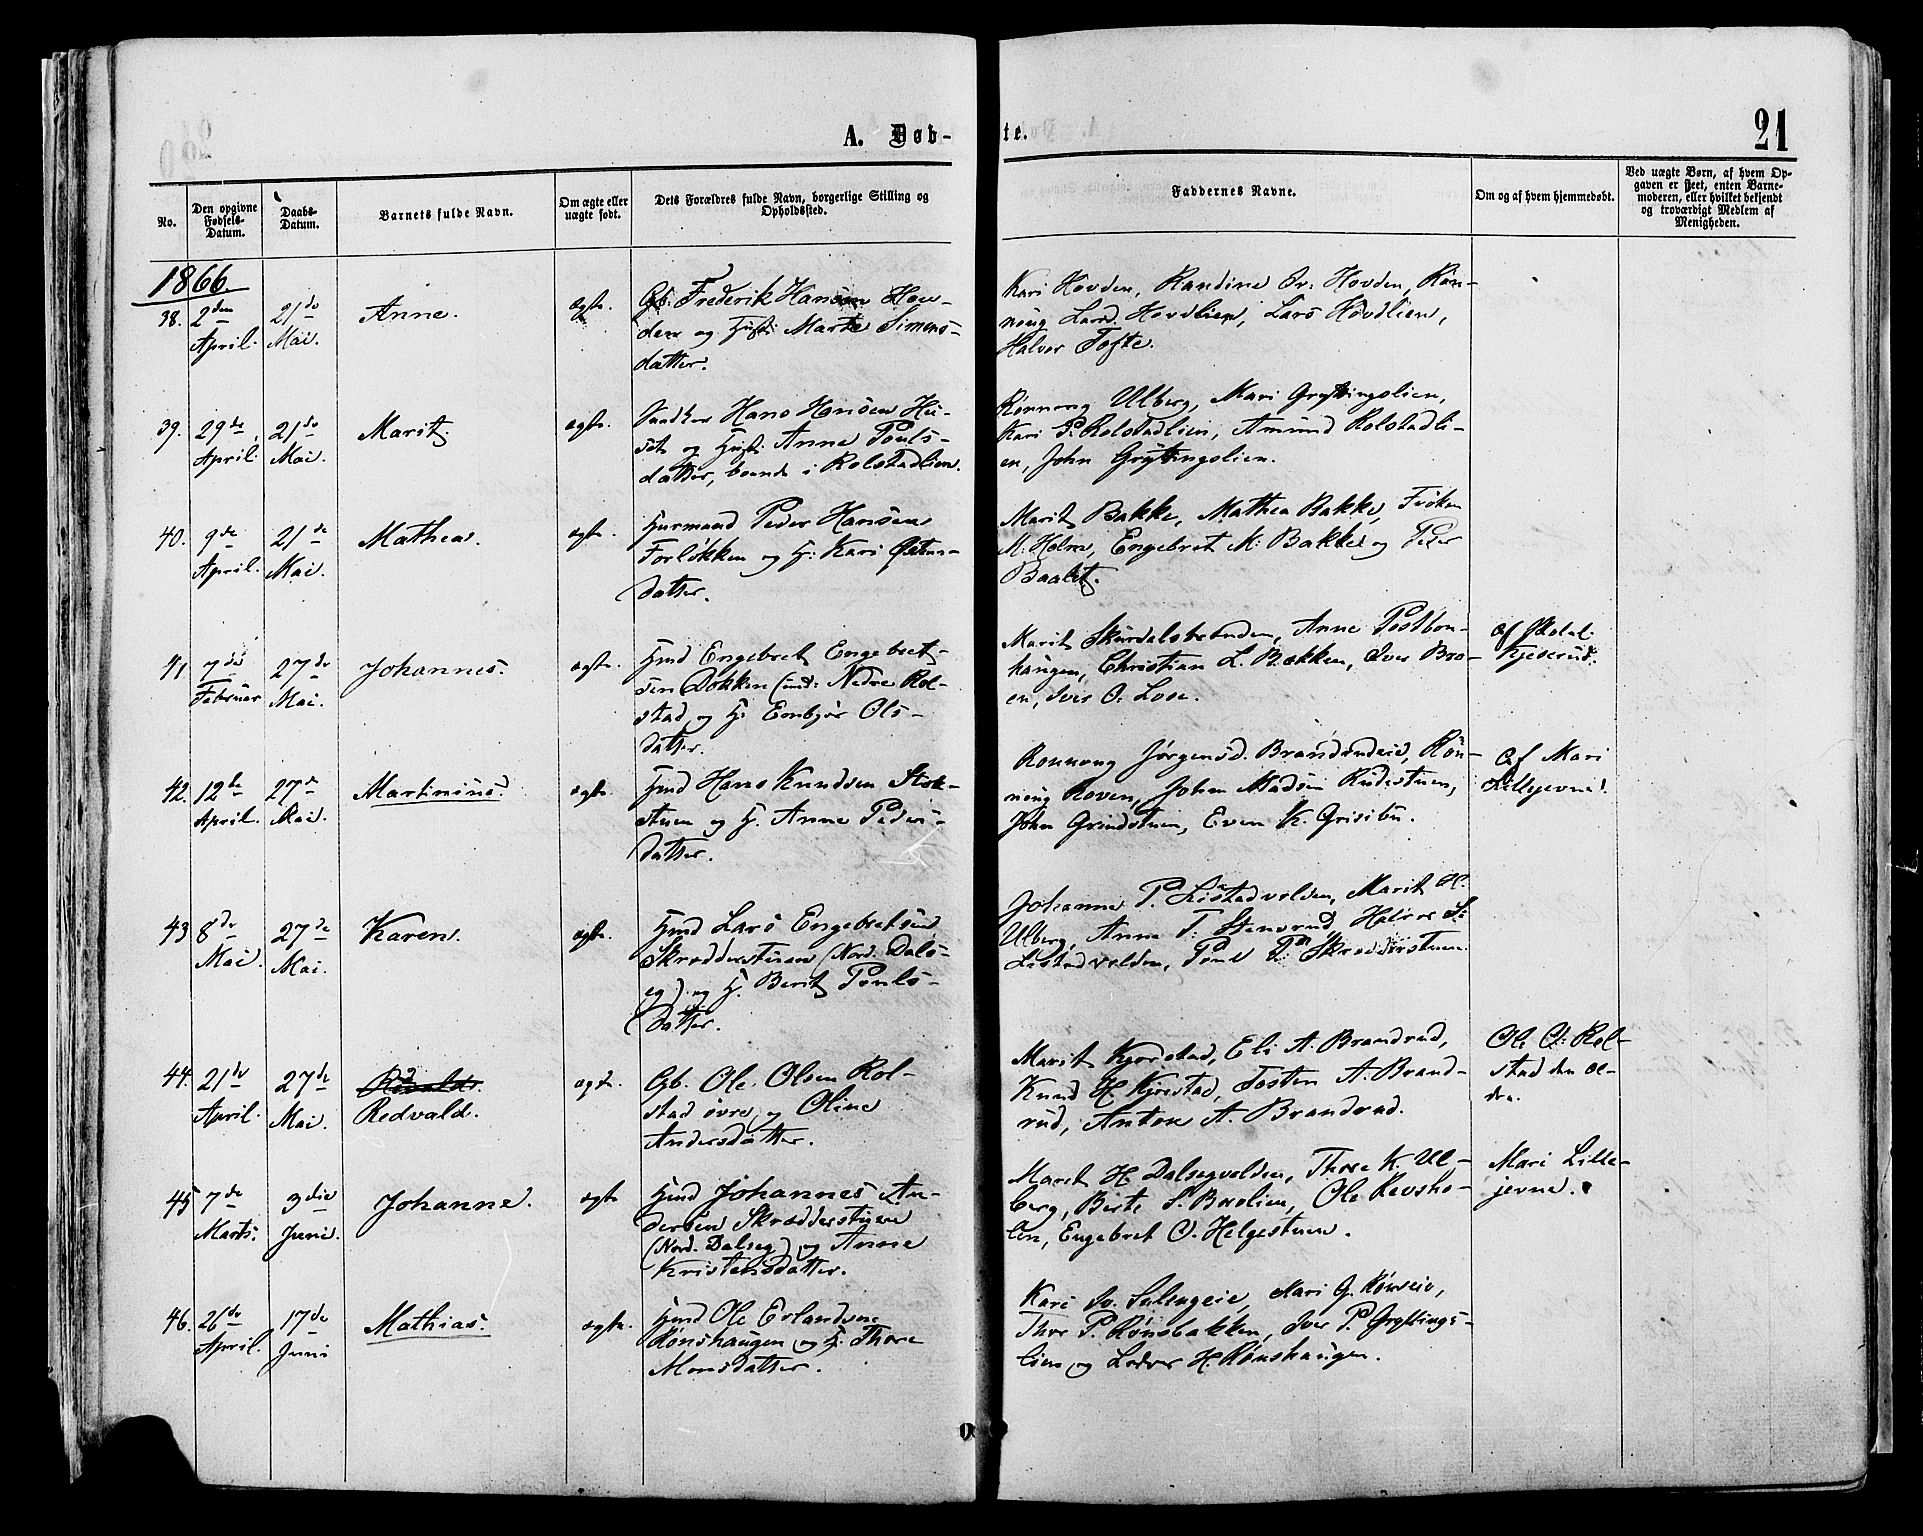 A. Døb-
te.
21
No.
Den opgivne
Fødsels-
Datum.
Daabs-
Datum.
Barnets fulde Navn.
Om ægte eller
uægte født.
Dets Forældres fulde Navn, borgerlige Stilling og
Opholdssted.
Faddernes Navne.
Om og af hvem hjemmedøbt.
Ved uægte Børn, af hvem Op-
gaven er skeet, enten Barne-
moderen, eller hvilket bekjendt
og troværdigt Medlem af
Menigheden.
1866.
38.
2den
April.
21de
Mai.
Anne.
ægte.
Gb. Frederik Hansen Hov-
den og Hust: Marte Simens-
datter.
Kari Hovden, Randine Hovden, Røn-
noug Hovdlien, Lars Hovdlien,
Halvor Tofte.
39.
29de
April.
21de
Mai.
Marit.
ægte.
Hans Hansen
og Hust: Anne Pouls-
datter, boende i Rolstadlien.
Rønnoug Ulberg, Mari Gryttingslien,
Kari P. Rolstadlien, Amund Rolstadli-
en, John Gryttingslien.
40.
9de
April.
21de
Mai.
Mathea.
ægte.
Huusmand Peder Hansen
Forløkken og H. Kari
datter.
Marit Bakke, Mathea Bakke, Frøken
M. Holm, Engebret M. Bakke og Peder
41
7de
Februar
27de
Mai.
Johannes.
ægte.
Hmd Engebret Engebret-
sen Dokken (und: Nedre Rol-
stad og H. Embjør Ols-
datter.
Marit Anne
haugen, Christian L. Bækken, Iver Bro-
en, Iver O. Lose.
af
42.
12te
April.
27de
Mai.
Martinius.
ægte.
Hmd Hans Knudsen Stok-
stuen og H. Anne Peders-
datter.
Ronnoug Jørgensd. Røn-
noug Roven, John Madsen Rudestuen,
John Grindstuen, Even K.
Af Mari
Lillejevne.
43
8de
Mai.
27de
Mai.
Karen.
ægte.
Hmd Lars Engebretsen
Skrædderstuen (Nord. Dals-
eg) og H. Berit Pouls-
datter.
Johanne P. Listadvolden, Marit
Ulberg, Anne T. Stensrud, Halvor S.
Listadvolden, Poul Skrædderstuen.
44.
21de
April.
27de
Mai.
Redvald.
ægte.
Gb. Ole Olsen Rol-
stad øvre, og Oline
Andersdatter.
Marit Kjørstad, Eli A. Brandrud,
Knud H. Kjørstad, Tosten A. Brand-
rud, Anton A. Brandrud.
Ole O. Rol-
stad den æl-
dre.
45
7de
Marts.
3die
Juni.
Johanne.
ægte
Hmd Johannes An-
dersen Skrædderstuen
(Nord. Dalseg) og Anne
Kristensdatter.
Marit H. Dalsegvolden, Thore K. Ul-
berg, Berte S. Ole
en, Engebret O. Helgestuen.
Mari Lille-
jevne.
46.
26de
April.
17de
Juni
Mathias.
ægte.
Hmd Ole Erlandsen
Rønshaugen og H. Thore
Monsdatter.
Kari Mari G.
Thore P. Rønsbakken, Iver P. Gryttings-
lien og H. Rønshaugen.